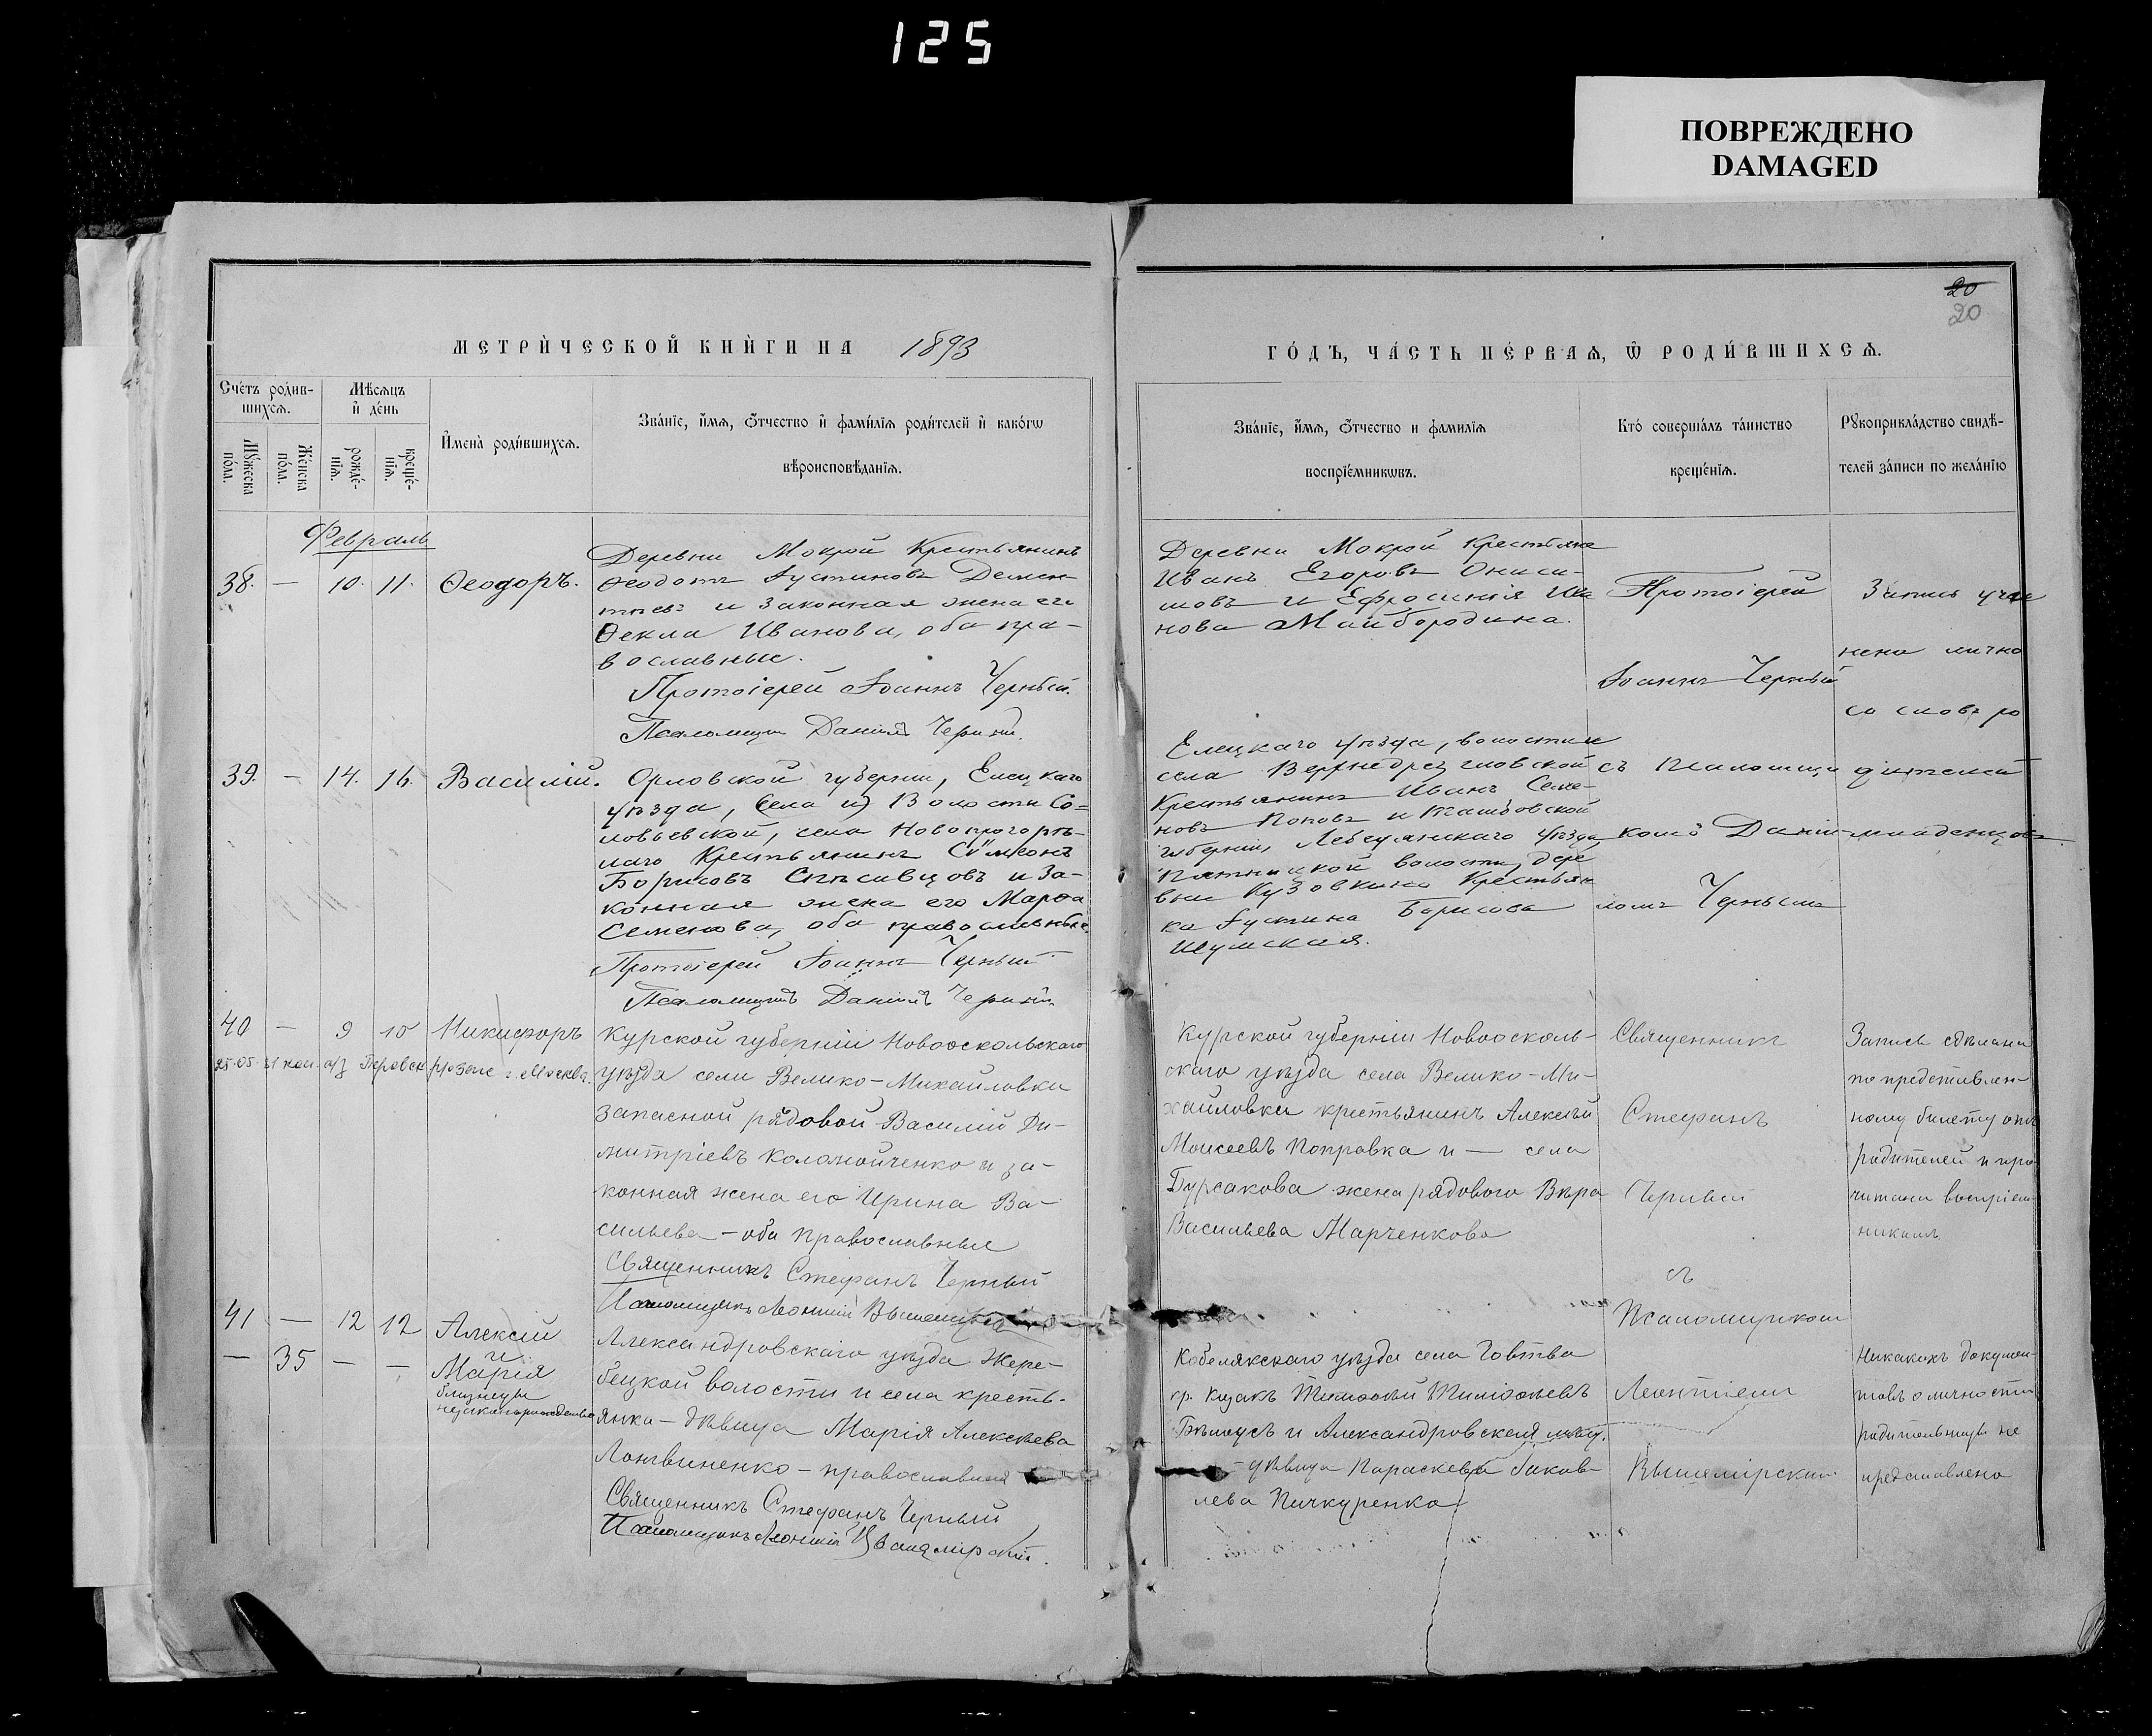 125
ПОВРЕЖДЕНО
DAMAGED
20
20
МЕТРИ́ЧЕСКОЙ КНИ́ГИ НА 1893
ГО́ДЪ, ЧА́СТЬ ПЕ́РВАѦ, Ѿ РОДИ́ВШИХСѦ.
Сче́тъ роди́в-
шихсѧ.
Мꙋ́жеска по́ла.
Же́нска по́ла.
Мѣ́сѧцъ
и҆ де́нь
рожде́-
нїѧ.
креще́-
нїѧ.
И҆мена̀ роди́вшихсѧ.
Зва́нїе, и҆́мѧ, ѻ҆́тчество и҆ фами́лїѧ роди́телей и҆ како́гѡ
вѣроисповѣ́данїѧ.
Зва́нїе, и҆́мѧ, ѻ҆́тчество и фамилїѧ
воспрїе́мникѡвъ.
Кто́ соверша́лъ та́инство
креще́нїѧ.
Рꙋкоприкла́дство свидѣ́-
телей за́писи по жела́нїю
Февраль
38. — 10. 11. Ѳеодоръ.
Деревни Мокрой Крестьянинъ
Ѳеодотъ Іустиновъ Демен-
тьевъ и законная жена его
Ѳекла Иванова, оба пра-
вославные.
Протоіерей Іоаннъ Черный.
Псаломщикъ Даніилъ Черный.
Деревни Мокрой Крестьяне
Иванъ Егоровъ Ониси-
мовъ и Ефросинія Ива
нова Майбородина.
Протоіерей
Іоаннъ Черный
съ Псаломщи
комъ Даніи-
ломъ Чернымъ
Запись учи
нена лично
со словъ ро
дителей
младенцовъ
39. — 14. 16. Василій.
Орловской губерніи, Елецкаго
уѣзда, Села и Волости Со-
ловьевской, села
Крестьянинъ Сѵмеонъ
Борисовъ Спѣсивцовъ и За-
конная жена его Марѳа
Семенова, оба православные.
Протоіерей Іоаннъ Черный
Псаломщикъ Даніилъ Черный
Елецкаго уѣзда, волости и
села
Крестьянинъ Иванъ Семе-
новъ Поповъ и Тамбовской
губерніи, Лебедянскаго уѣзда,
Пятницкой волости, дере
вни Кузовкина Крестьян
ка Іустина Борисова
Шумская.
40 — 9 10 Никифоръ
25.05.31 а/з г. Москва.
Курской губерніи Новооскольскаго
уѣзда села Велико-Михайловки
запасной рядовой Василій Ди-
митріевъ Коломойченко и за-
конная жена его Ирина Ва-
сильева — оба православные
Священникъ Стефанъ Черный
Псаломщикъ Леонтій
Курской губерніи Новоосколь-
скаго уѣзда села Велико-Ми-
хайловки крестьянинъ Алексѣй
Моисеевъ Поправка и — села
Бурсакова жена рядового Вѣра
Васильева Марченкова
Священникъ
Стефанъ
Черный
съ
Псаломщикомъ
Леонтіемъ
Запись сдѣлана
по представлен-
ному билету отъ
родителей и про-
читана воспріем-
никамъ
41 — 12 12 Алексій
— 35 — — и
Марія
близнецы
Александровскаго уѣзда Жере-
бецкой волости и села кресть-
янка — дѣвица Марія Алексѣева
Лонгвиненко — православная
Священникъ Стефанъ Черный
Псаломщикъ Леонтій
Кобелякскаго уѣзда села Говтва
кр. козакъ Тимоѳей Тимоѳеевъ
Бѣлоусъ и Александровская
дѣвица Параскева Іаков-
лева Пичкуренко
Никакихъ докумен-
товъ о личности
родительницы не
представлено